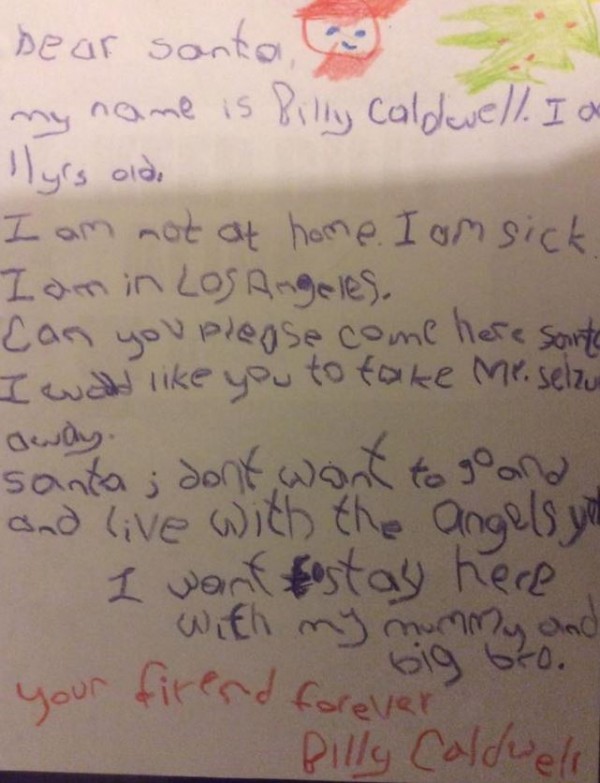 Dear santa,
my name is Billy Caldwell. I a
11yrs old.
I am not at home. I am sick.
I am in LOS Angeles.
Can you please come here santa
I would like you to take Mr. seizu
away.
santa i dont want to go and
and live with the angels y
I want to stay here
with my mummy and
big bro.
your firend forever
Billy Caldwell